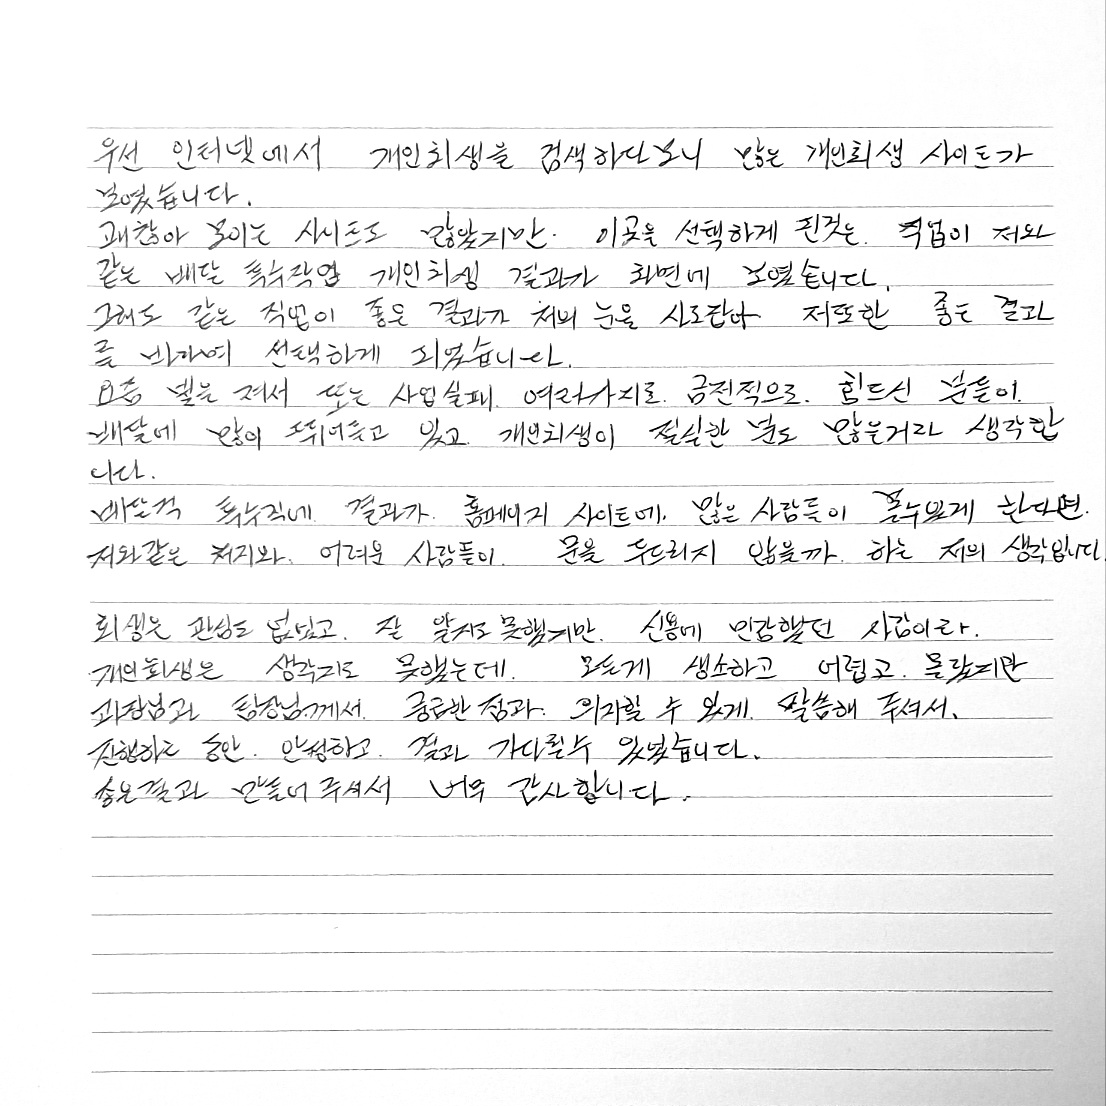 우선 인터넷에서 개인회생을 검색하다보니 많은 개인회생 사이트가
보였습니다.
괜찮아 보이는 사이트도 많았지만. 이곳을 선택하게 된것은. 직업이 저와
같은 배달 특수작업 개인회생 결과가 화면에 보였습니다.
그래도 같은 직업이 좋은 결과가 저의 눈을 사로잡아 저또한 좋은 결과
를 바라며 선택하게 되었습니다.
요즘 빚을 져서 또는 사업실패. 여러가지로. 금전적으로. 힘드신 분들이.
배달에 많이 뛰어들고 있고. 개인회생이 절실한 분도 많을거라 생각합
니다.
배달직 특수직에 결과가. 홈페이지 사이트에. 많은 사람들이 볼수있게 한다면.
저와같은 처지와. 어려운 사람들이. 문을 두드리지 않을까. 하는 저의 생각입니다.
회생은 관심도 없었고. 잘 알지도 못했지만. 신용에 민감했던 사람이라.
개인회생은 생각지도 못했는데. 모든게 생소하고 어렵고. 몰랐지만
과장님과 팀장님께서. 궁금한 점과. 의지할 수 있게. 말씀해 주셔서.
진행하는 동안. 안정하고. 결과 기다릴수 있었습니다.
좋은결과 만들어주셔서 너무 감사합니다.